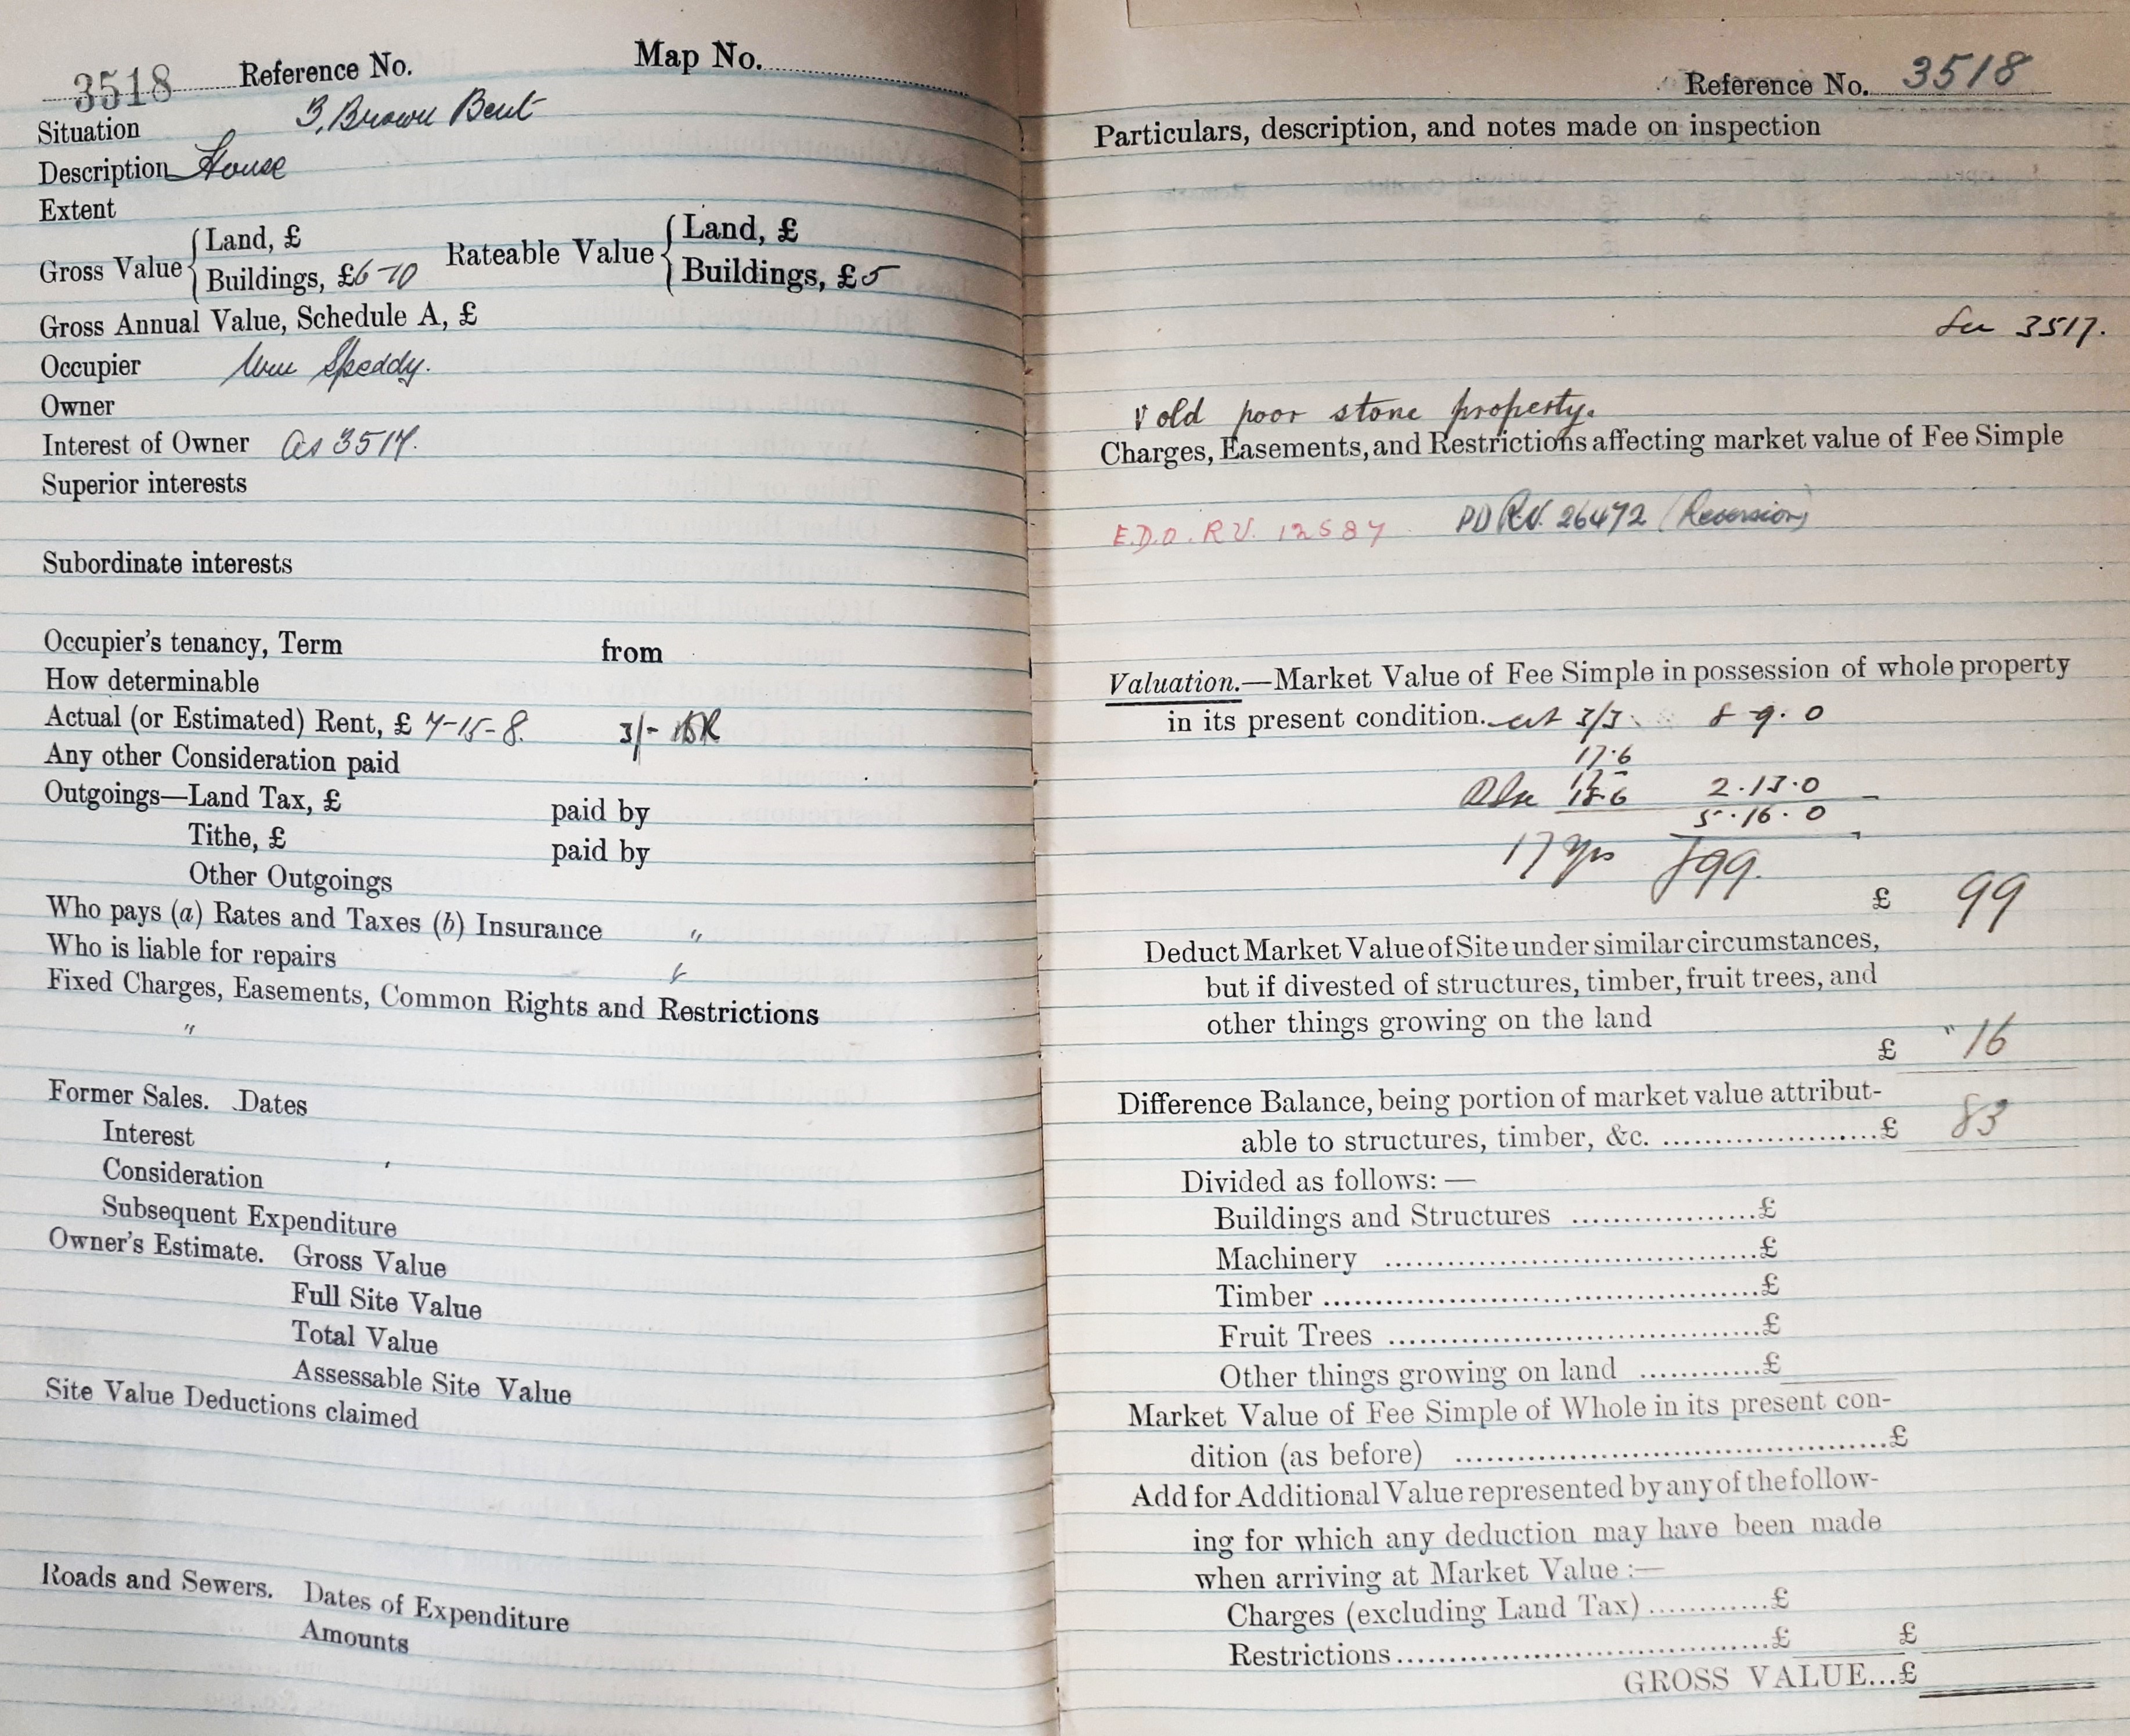 3518 Reference No. Map No.
Situation 3, Brown Bent
Description House
Extent
Gross Value { Land, £
Buildings, £6-10
Rateable Value { Land, £
Buildings, £5
Gross Annual Value, Schedule A, £
Occupier Wm Speddy.
Owner
Interest of Owner as 3517.
Superior interests
Subordinate interests
Occupier's tenancy, Term from
How determinable
Actual (or Estimated) Rent, £ 7-15-8. 3/-
Any other Consideration paid
Outgoings—Land Tax, £ paid by
Tithe, £ paid by
Other Outgoings
Who pays (a) Rates and Taxes (b) Insurance "
Who is liable for repairs
Fixed Charges, Easements, Common Rights and Restrictions
"
Former Sales. Dates
Interest
Consideration
Subsequent Expenditure
Owner's Estimate. Gross Value
Full Site Value
Total Value
Assessable Site Value
Site Value Deductions claimed
Roads and Sewers. Dates of Expenditure
Amounts
Reference No. 3518
Particulars, description, and notes made on inspection
See 3517.
V old poor stone property.
Charges, Easements, and Restrictions affecting market value of Fee Simple
E.D.O. R.V. 12587 PD R.V. 26472 (Reversion)
Valuation.—Market Value of Fee Simple in possession of whole property
in its present condition. at 3/3 8 9. 0
17.6
2.13.0
5.16.0
17 yrs £99.
£ 99
Deduct Market Value of Site under similar circumstances,
but if divested of structures, timber, fruit trees, and
other things growing on the land
£ 16
Difference Balance, being portion of market value attribut-
able to structures, timber, &c. ....................£ 83
Divided as follows: —
Buildings and Structures ..................£
Machinery ....................................£
Timber ..........................................£
Fruit Trees ....................................£
Other things growing on land ............£
Market Value of Fee Simple of Whole in its present con-
dition (as before) ..........................................£
Add for Additional Value represented by any of the follow-
ing for which any deduction may have been made
when arriving at Market Value :—
Charges (excluding Land Tax) ............£
Restrictions.....................................£ £
GROSS VALUE...£